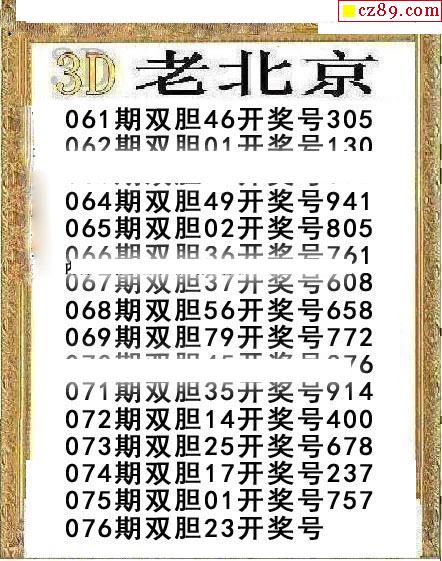 cz89.com
3D 老北京
061期双胆46开奖号305
062期双胆01开奖号130
064期双胆49开奖号941
065期双胆02开奖号805
066期双胆36开奖号761
067期双胆37开奖号608
068期双胆56开奖号658
069期双胆79开奖号772
双胆45开奖号376
071期双胆35开奖号914
072期双胆14开奖号400
073期双胆25开奖号678
074期双胆17开奖号237
075期双胆01开奖号757
076期双胆23开奖号